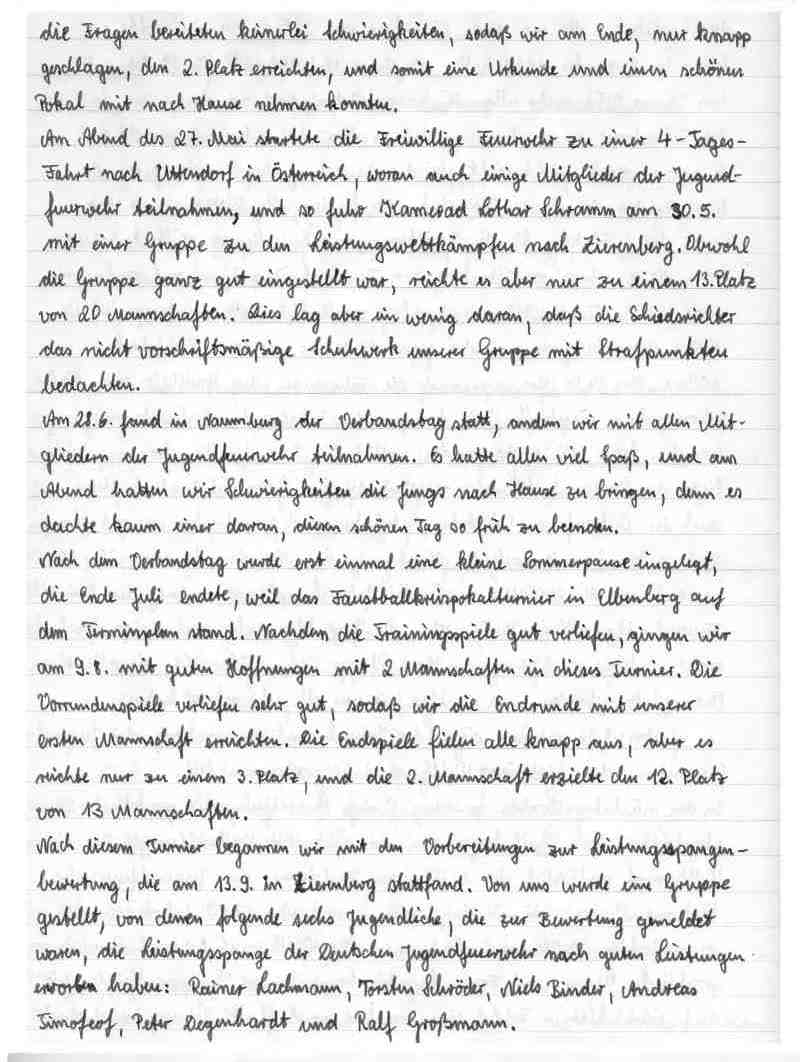 die Fragen bereiteten keinerlei Schwierigkeiten, sodaß wir am Ende, nur knapp
geschlagen, den 2. Platz erreichten, und somit eine Urkunde und einen schönen
Pokal mit nach Hause nehmen konnten.
Am Abend des 27. Mai startete die Freiwillige Feuerwehr zu einer 4-Tages-
Fahrt nach Uttendorf in Österreich, woran auch einige Mitglieder der Jugend-
feuerwehr teilnahmen, und so fuhr Kamerad Lothar Schramm am 30.5.
mit einer Gruppe zu den Leistungswettkämpfen nach Zierenberg. Obwohl
die Gruppe ganz gut eingestellt war, reichte es aber nur zu einem 13. Platz
von 20 Mannschaften. Dies lag aber ein wenig daran, daß die Schiedsrichter
das nicht vorschriftsmäßige Schuhwerk unserer Gruppe mit Strafpunkten
bedachten.
Am 28.6. fand in Naumburg der Verbandstag statt, andem wir mit allen Mit-
gliedern der Jugendfeuerwehr teilnahmen. Es hatte allen viel Spaß, und am
Abend hatten wir Schwierigkeiten die Jungs nach Hause zu bringen, denn es
dachte kaum einer daran, diesen schönen Tag so früh zu beenden.
Nach dem Verbandstag wurde erst einmal eine kleine Sommerpause eingelegt,
die Ende Juli endete, weil das Faustballkreispokalturnier in Elbenberg auf
dem Terminplan stand. Nachdem die Trainingsspiele gut verliefen, gingen wir
am 9.8. mit guten Hoffnungen mit 2 Mannschaften in dieses Turnier. Die
Vorrundenspiele verliefen sehr gut, sodaß wir die Endrunde mit unserer
ersten Mannschaft erreichten. Die Endspiele fielen alle knapp aus, aber es
reichte nur zu einem 3. Platz, und die 2. Mannschaft erzielte den 12. Platz
von 13 Mannschaften.
Nach diesem Turnier begannen wir mit den Vorbereitungen zur Leistungsspangen-
bewertung, die am 13.9. in Zierenberg stattfand. Von uns wurde eine Gruppe
gestellt, von denen folgende sechs Jugendliche, die zur Bewertung gemeldet
waren, die Leistungsspange der Deutschen Jugendfeuerwehr nach guten Leistungen
erworben haben: Rainer Lachmann, Torsten Schröder, Niels Binder, Andreas
Timofeof, Peter Degenhardt und Ralf Großmann.